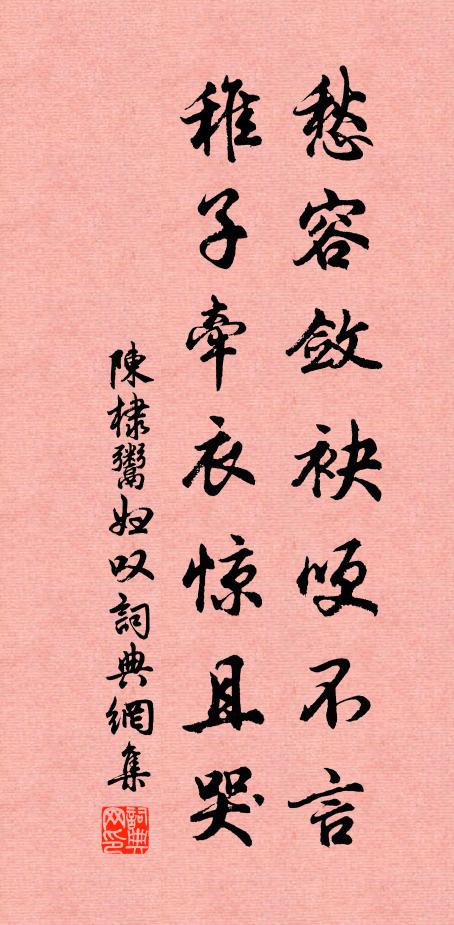 愁容斂袂哽不言
稚子牽衣惊且哭
陳棣鬻婦叹詞典網集
詞典网印